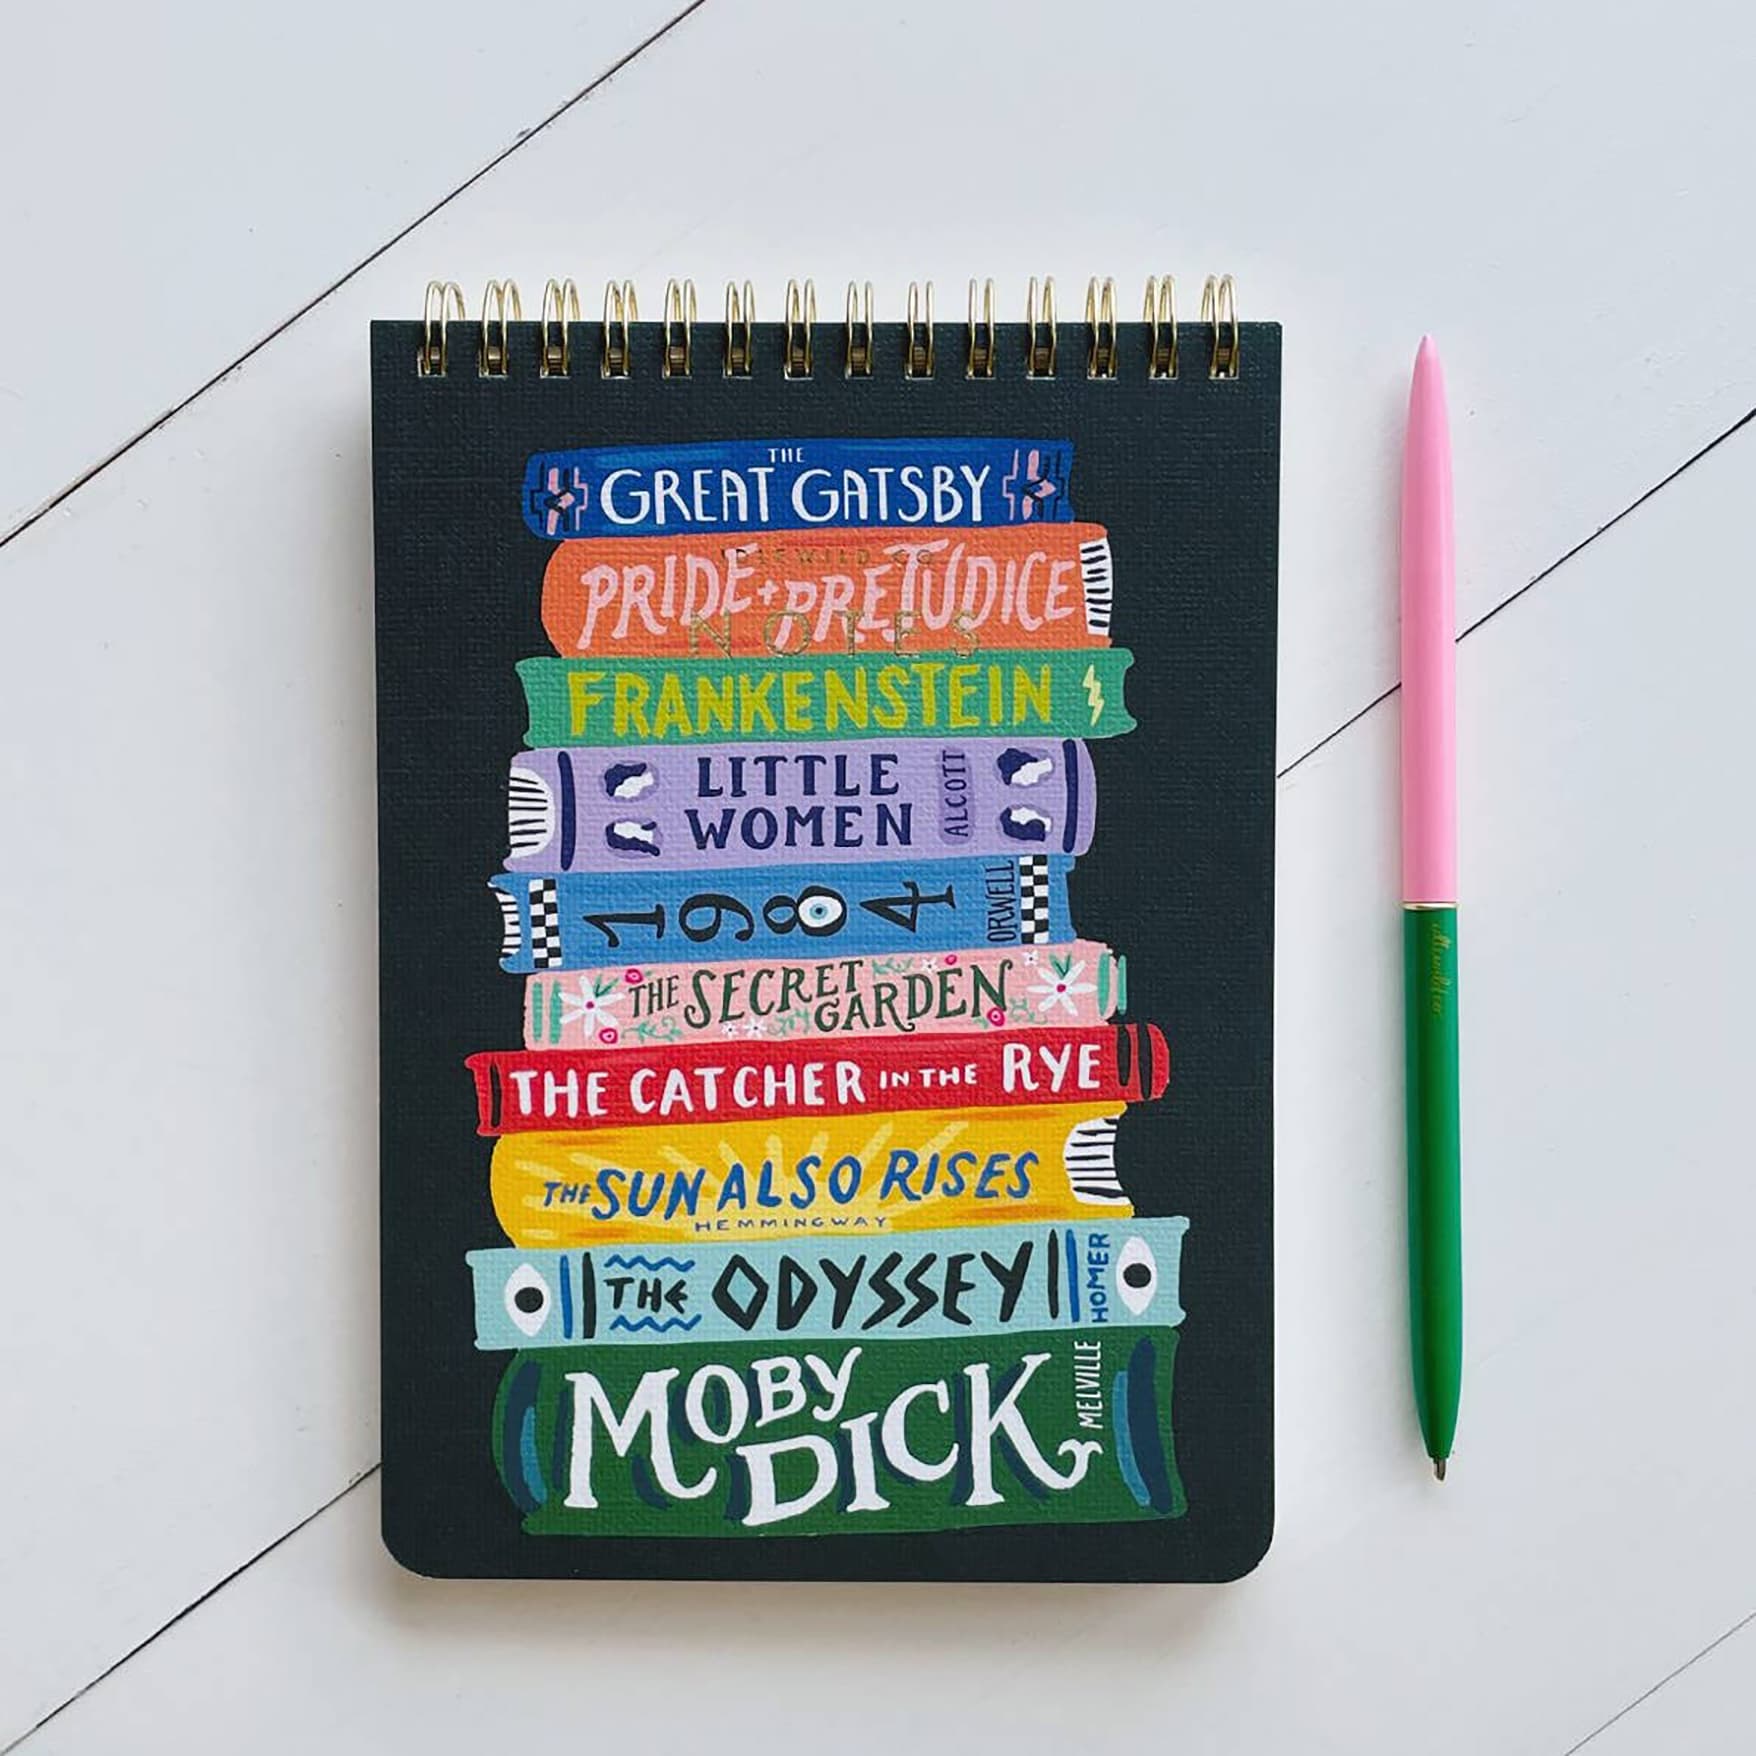 THE
GREAT GATSBY
IDLEWILD CO
PRIDE + PREJUDICE
NOTES
FRANKENSTEIN
LITTLE
WOMEN
ALCOTT
1984
ORWELL
THE SECRET
GARDEN
THE CATCHER IN THE RYE
THE SUN ALSO RISES
HEMMINGWAY
THE ODYSSEY
HOMER
MOBY
DICK
MELVILLE